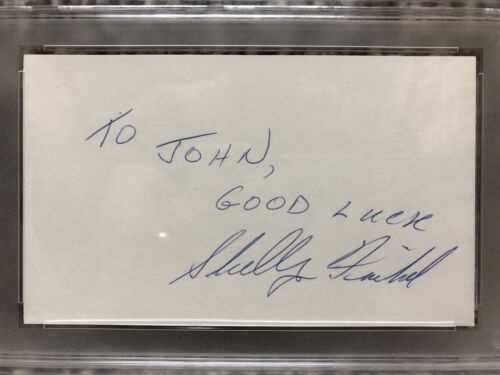 TO JOHN,
GOOD LUCK
Shelly Finkel